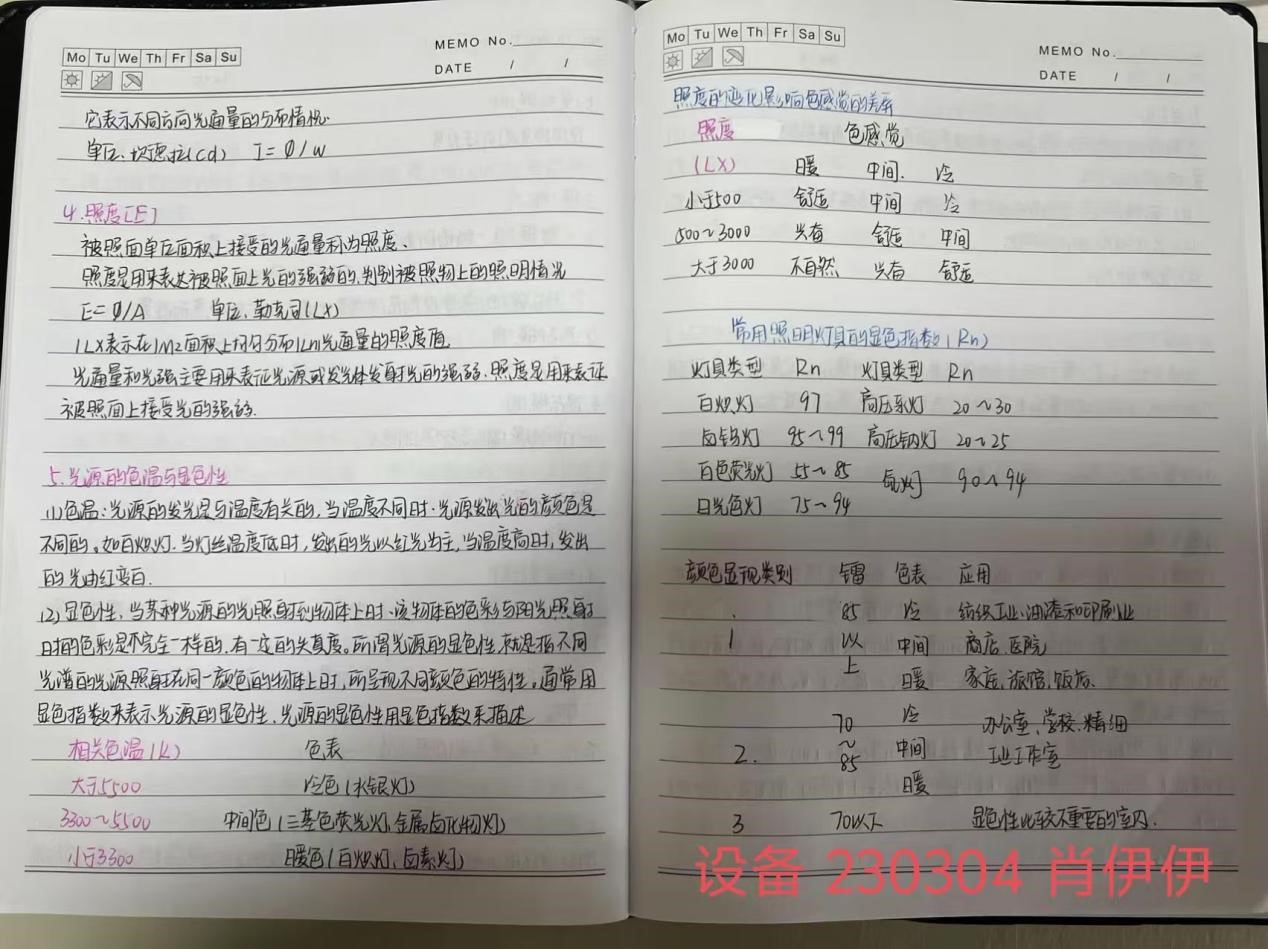 Mo Tu We Th Fr Sa Su
MEMO No.
DATE / /
它表示不同方向光通量的分布情况.
单位.坎德拉(cd) I=Ø/w
4.照度[E]
被照面单位面积上接受的光通量称为照度、
照度是用来表达被照面上光的强弱的,判别被照物上的照明情况
E=Ø/A 单位,勒克司(LX)
1LX表示在1m2面积上均匀分布1Lm光通量的照度值.
光通量和光强主要用来表征光源或发光体发射光的强弱.照度是用来表征
被照面上接受光的强弱.
5.光源的色温与显色性
(1)色温:光源的发光是与温度有关的,当温度不同时.光源发出光的颜色是
不同的。如白炽灯.当灯丝温度低时,发出的光以红光为主,当温度高时,发出
的光由红变白.
(2)显色性,当某种光源的光照射到物体上时.该物体的色彩与阳光照射
时的色彩是不完全一样的,有一定的失真度。所谓光源的显色性,就是指不同
光谱的光源照射在同一颜色的物体上时,所呈现不同颜色的特性。通常用
显色指数来表示光源的显色性,光源的显色性用显色指数来描述
相关色温(K) 色表
大于5500 冷色(水银灯)
3300~5500 中间色(三基色荧光灯,金属卤化物灯)
小于3300 暖色(白炽灯,卤素灯)
Mo Tu We Th Fr Sa Su
MEMO No.
DATE / /
照度的变化影响色感觉的差异
照度 色感觉
(LX) 暖 中间. 冷
小于500 舒适 中间 冷
500~3000 兴奋 舒适 中间
大于3000 不自然 兴奋 舒适
常用照明灯具的显色指数(Rn)
灯具类型 Rn 灯具类型 Rn
白炽灯 97 高压汞灯 20~30
卤钨灯 95~99 高压钠灯 20~25
白色荧光灯 55~85 氙灯 90~94
日光色灯 75~94
颜色显现类别 镭 色表 应用
85 冷 纺织工业、油漆和印刷业
1 以 中间 商店.医院
上 暖 家庭,旅馆,饭店.
70 冷 办公室、学校、精细
2. ~ 85 中间 工业工作室
暖
3 70以下 显色性比较不重要的室内.
设备 230304 肖伊伊